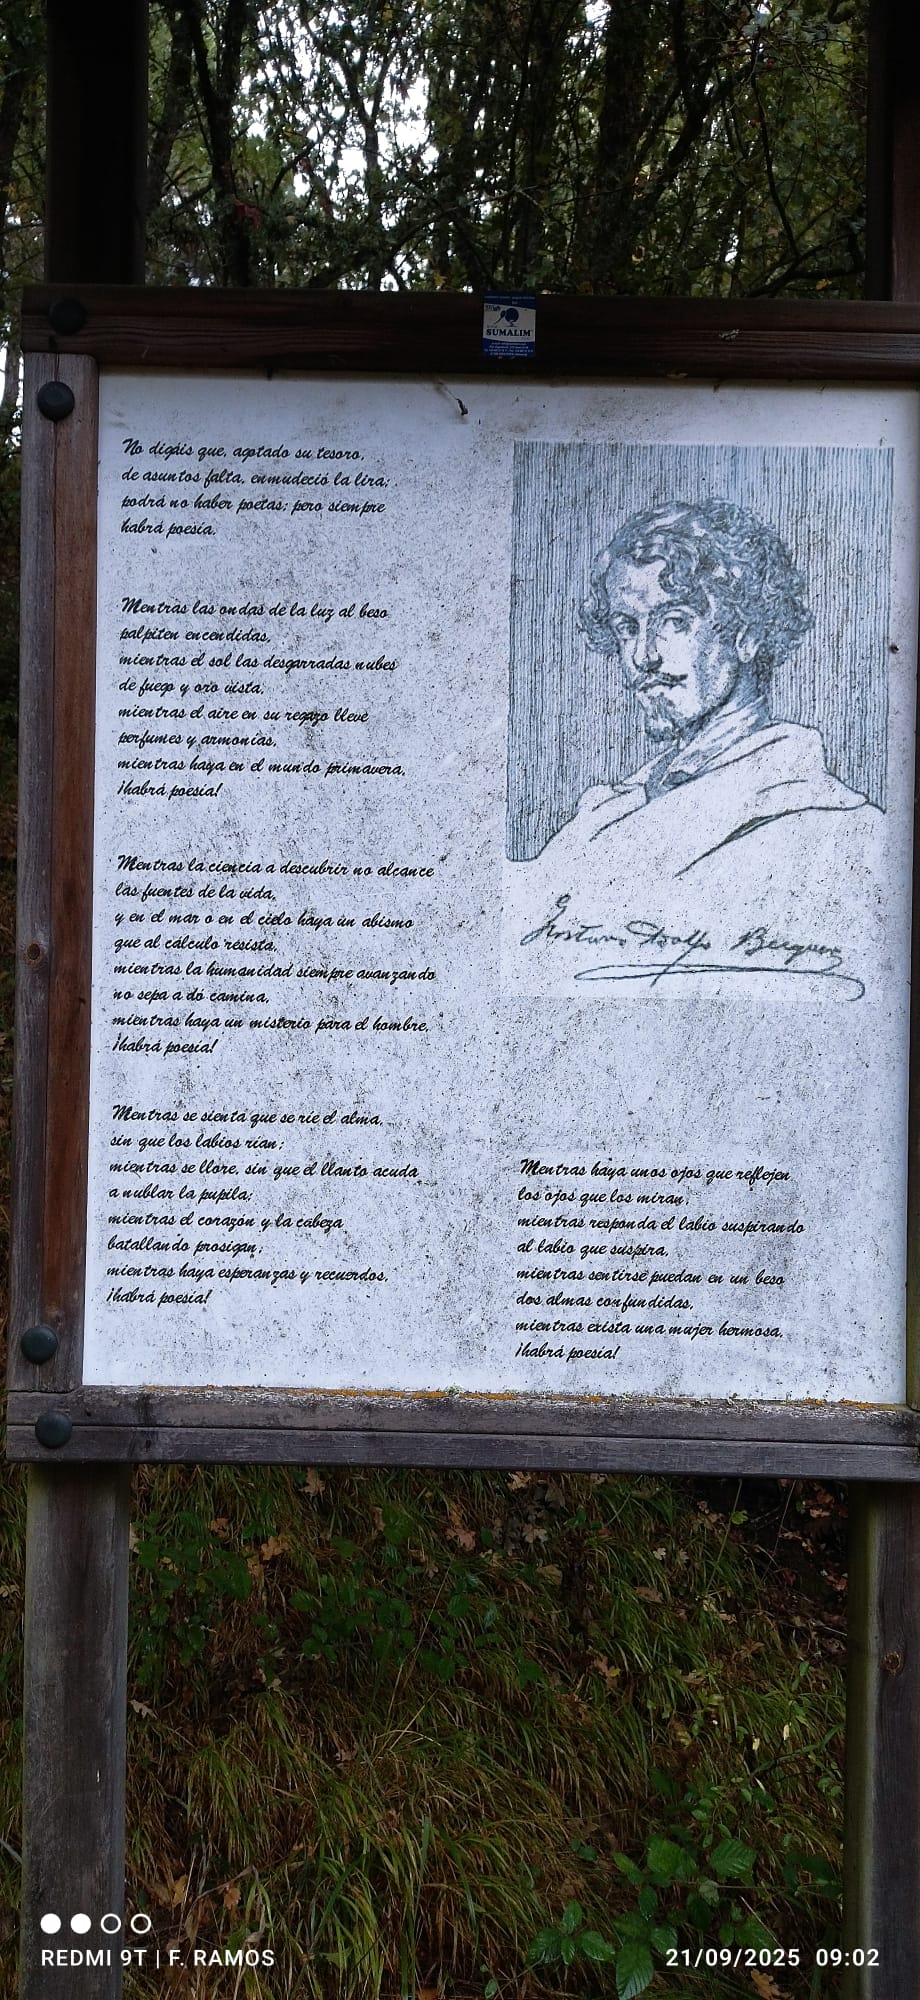 SUMALIM
No digáis que, agotado su tesoro,
de asuntos falta, enmudeció la lira;
podrá no haber poetas; pero siempre
habrá poesía.
Mentras las ondas de la luz al beso
palpiten encendidas,
mientras el sol las desgarradas nubes
de fuego y oro vista,
mientras el aire en su regazo lleve
perfumes y armonías,
mientras haya en el mundo primavera,
¡habrá poesía!
Mentras la ciencia a descubrir no alcance
las fuentes de la vida,
y en el mar o en el cielo haya un abismo
que al cálculo resista,
mientras la humanidad siempre avanzando
no sepa a dó camina,
mientras haya un misterio para el hombre,
¡habrá poesía!
Mentras se sienta que se ríe el alma,
sin que los labios rían;
mientras se llore, sin que el llanto acuda
a nublar la pupila;
mientras el corazón y la cabeza
batallando prosigan;
mientras haya esperanzas y recuerdos,
¡habrá poesía!
Gustavo Adolfo Becquer
Mentras haya unos ojos que reflejen
los ojos que los miran,
mientras responda el labio suspirando
al labio que suspira,
mientras sentirse puedan en un beso
dos almas confundidas,
mientras exista una mujer hermosa,
¡habrá poesía!
REDMI 9T | F. RAMOS
21/09/2025 09:02